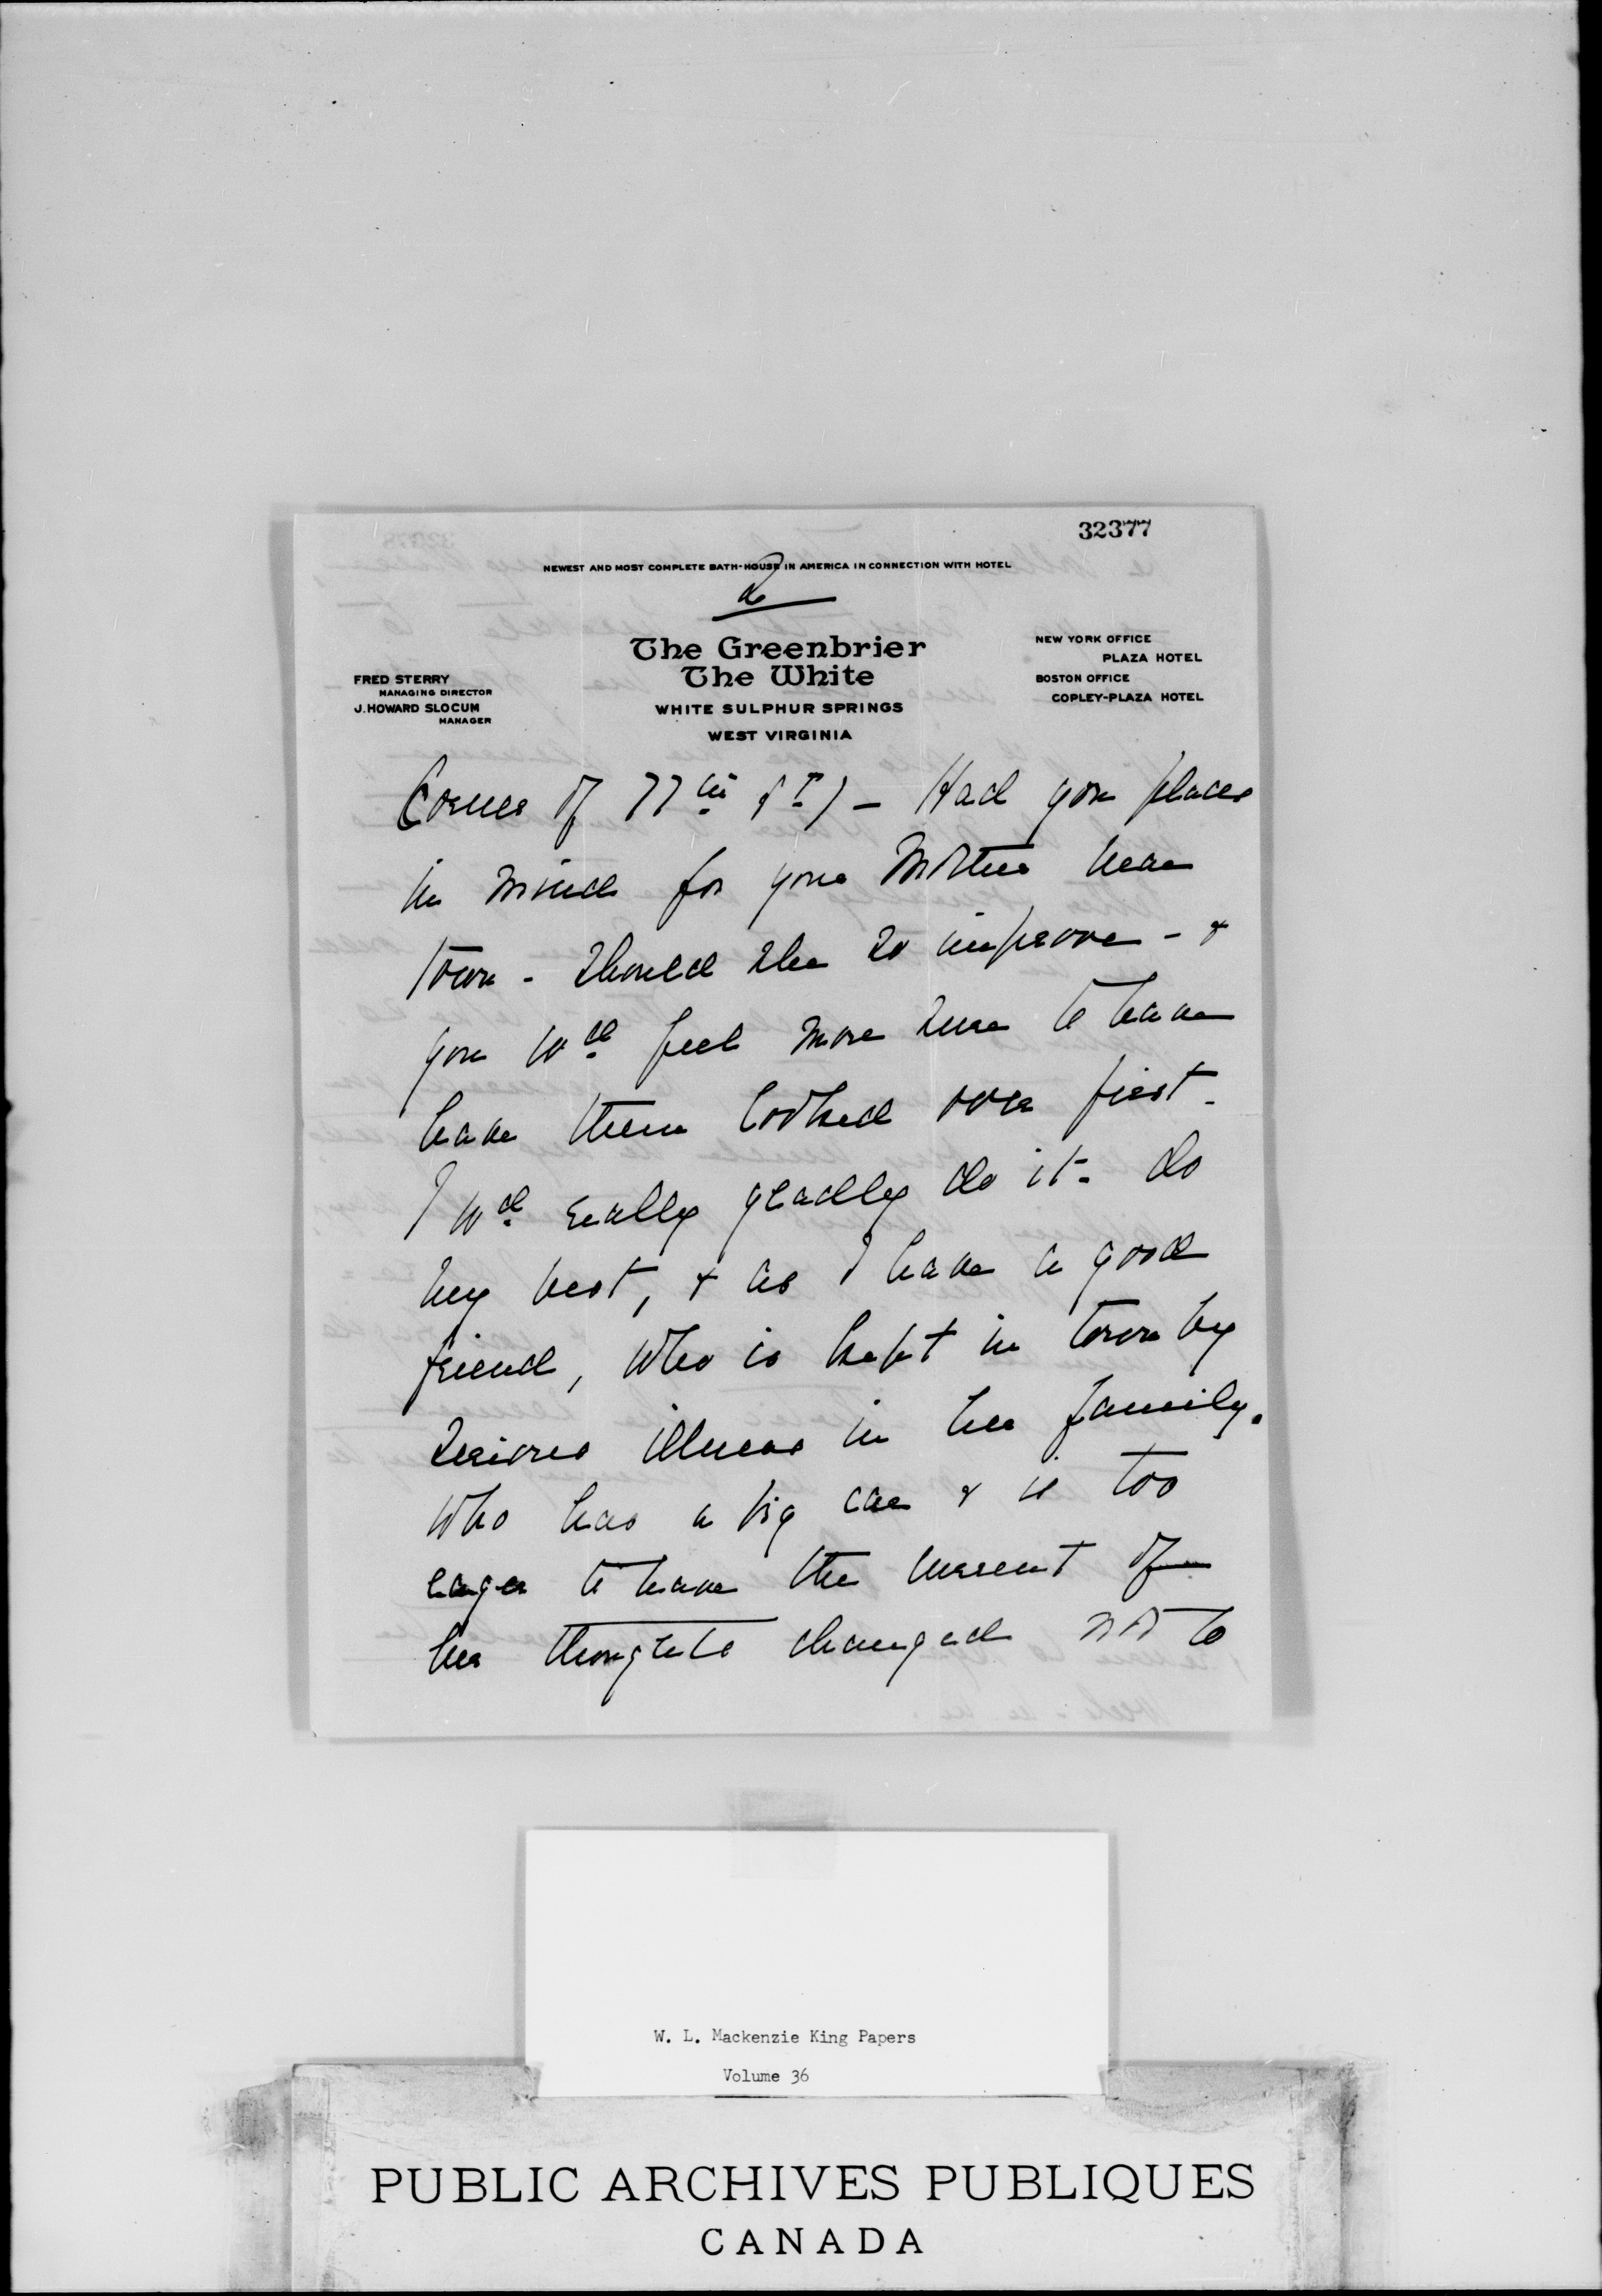 32377
NEWEST AND MOST COMPLETE BATH-HOUSE IN AMERICA IN CONNECTION WITH HOTEL
2
The Greenbrier
The White
WHITE SULPHUR SPRINGS
WEST VIRGINIA
FRED STERRY
MANAGING DIRECTOR
J. HOWARD SLOCUM
MANAGER
NEW YORK OFFICE
PLAZA HOTEL
BOSTON OFFICE
COPLEY-PLAZA HOTEL
Corner of 77th St) - Had you places
in mind for your Mother near
town - should she so improve - &
you wd feel more sure to have
have them looked over first -
I wd really gladly do it - do
my best, & as I have a good
friend, who is kept in town by
serious illness in her family.
Who has a big car & is too
eager to have the current of
her thoughts changed not to
W. L. Mackenzie King Papers
Volume 36
PUBLIC ARCHIVES PUBLIQUES
CANADA